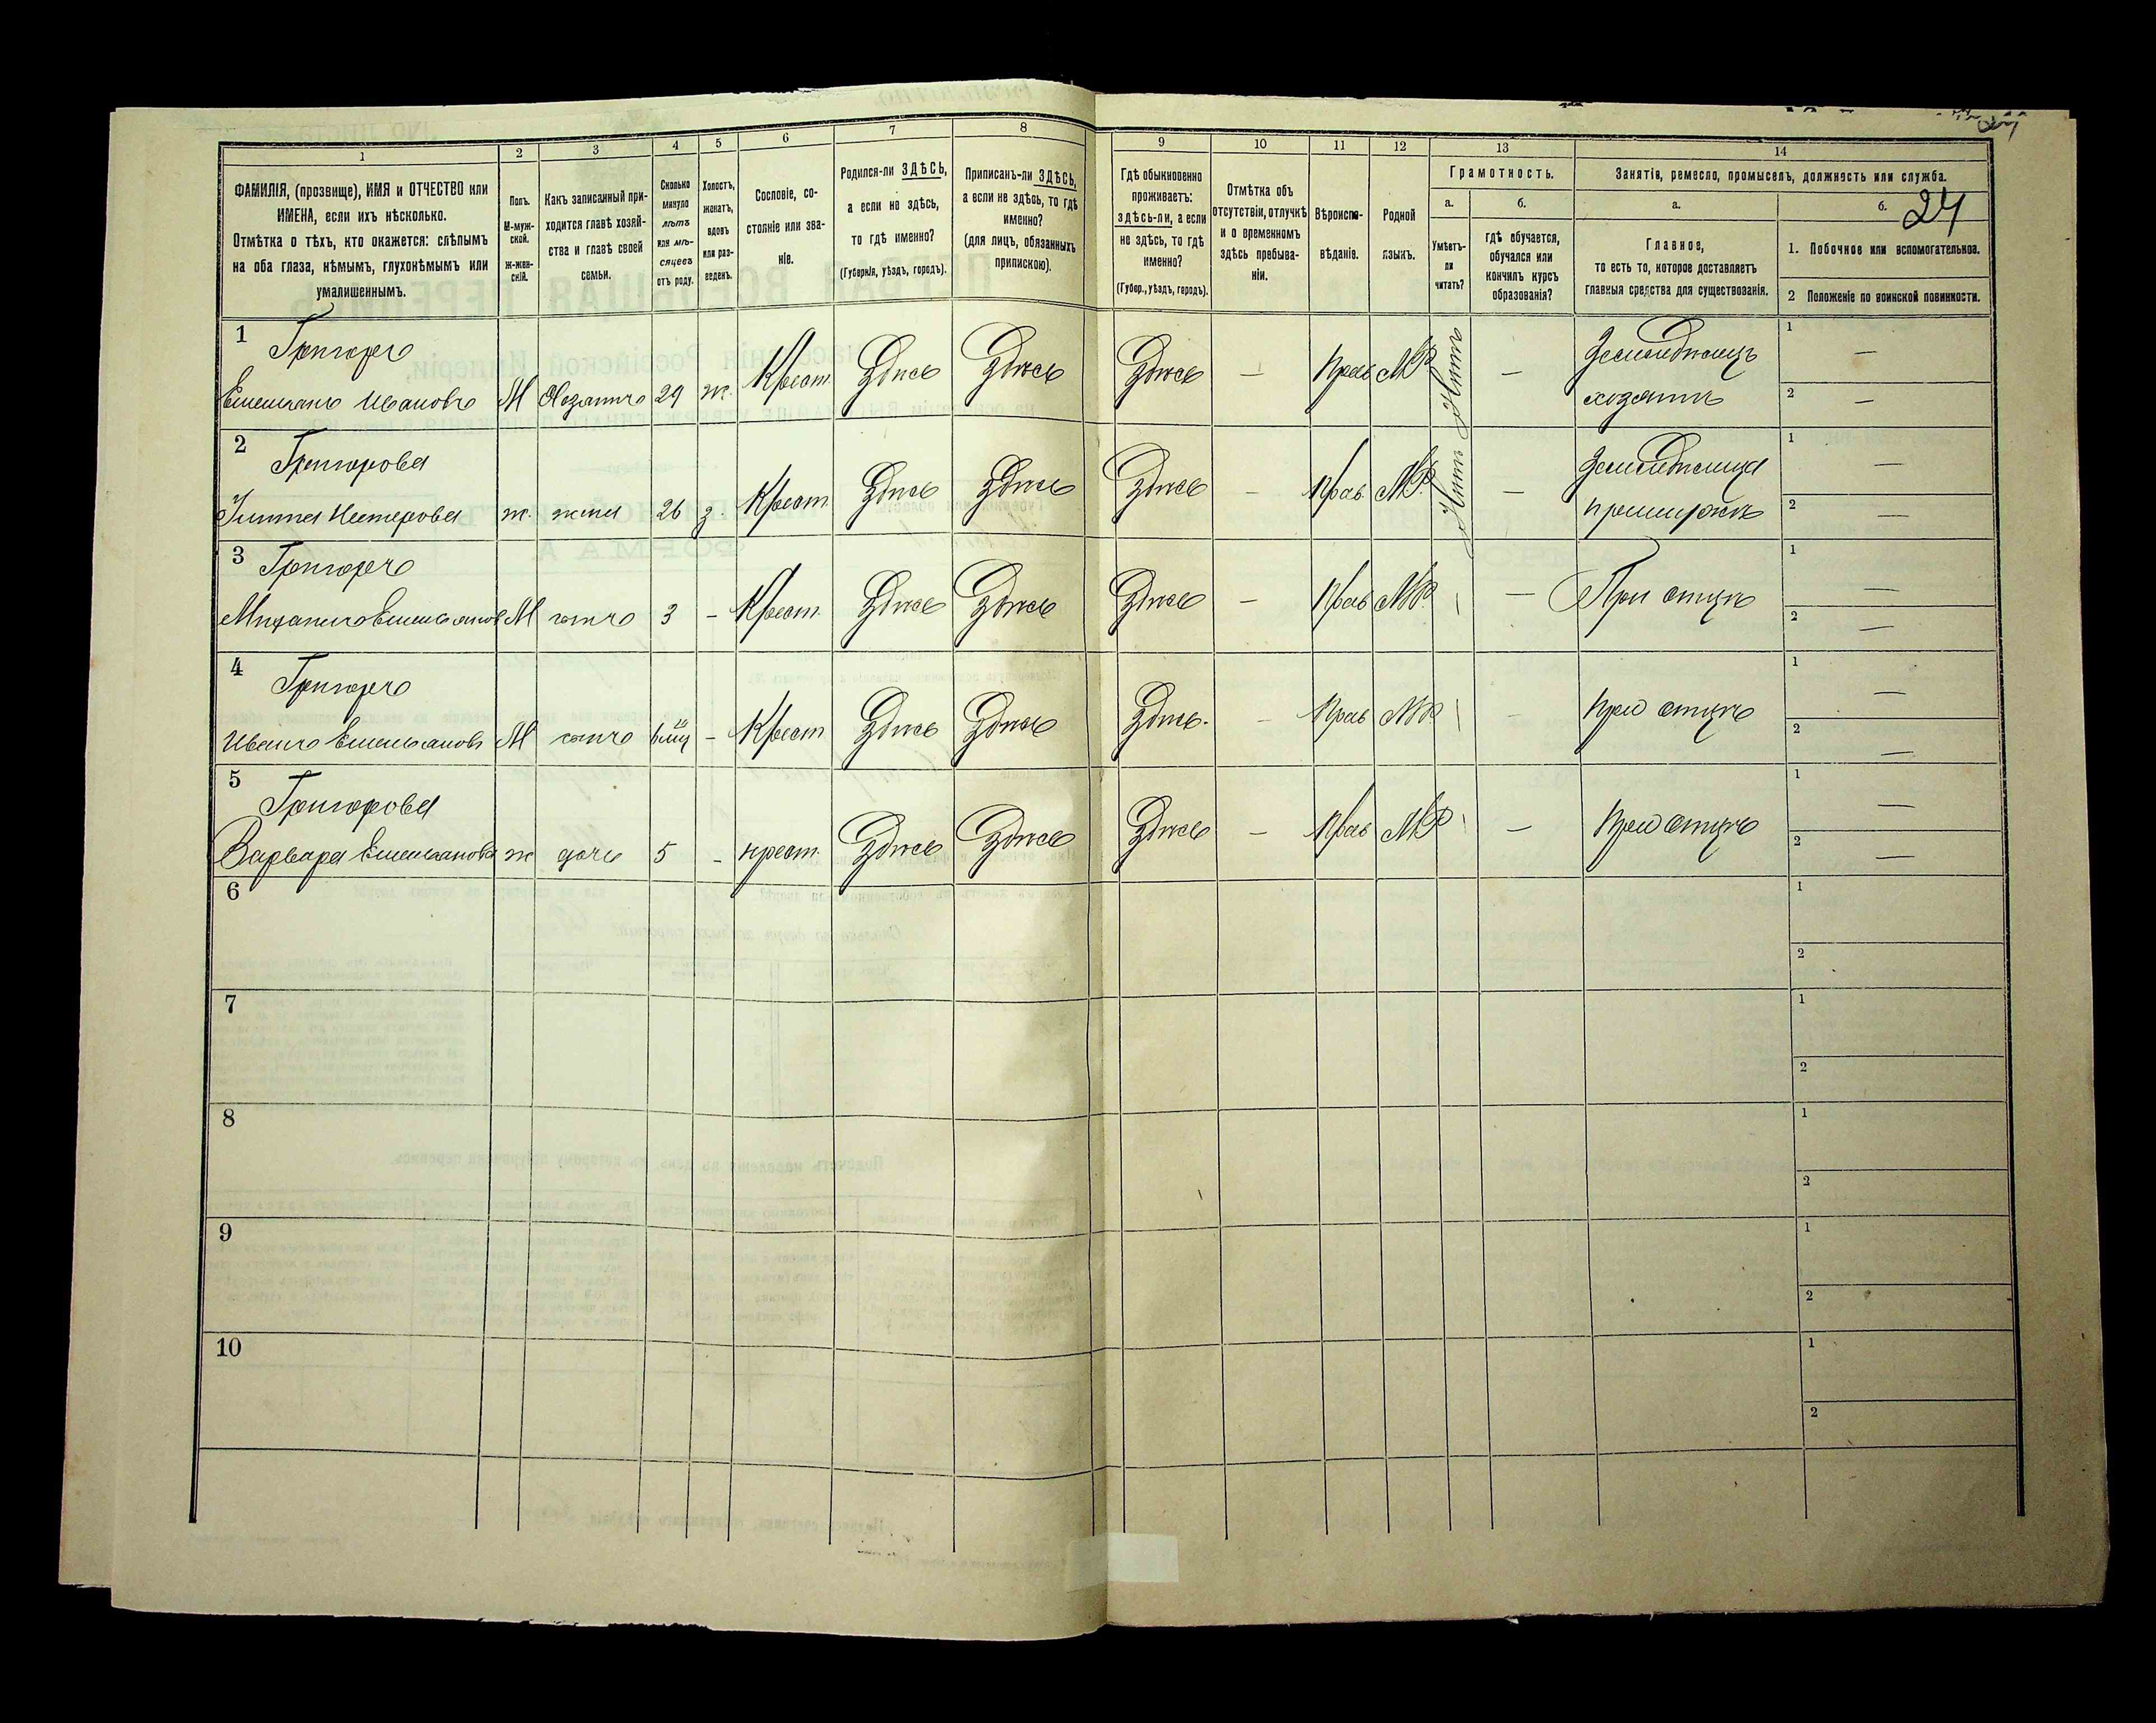 24
1
2
3
4
5
6
7
8
9
10
11
12
13
14
ФАМИЛІЯ, (прозвище), ИМЯ и ОТЧЕСТВО или
ИМЕНА, если ихъ нѣсколько.
Отмѣтка о тѣхъ, кто окажется: слѣпымъ
на оба глаза, нѣмымъ, глухонѣмымъ или
умалишеннымъ.
Полъ.
М-муж-
ской.
Ж-жен-
скій.
Какъ записанный при-
ходится главѣ хозяй-
ства и главѣ своей
семьи.
Сколько
минуло
лѣтъ
или мѣ-
сяцевъ
отъ роду.
Холостъ,
женатъ,
вдовъ
или раз-
веденъ.
Сословіе, со-
стояніе или зва-
ніе.
Родился-ли ЗДѢСЬ,
а если не здѣсь,
то гдѣ именно?
(Губернія, уѣздъ, городъ).
Приписанъ-ли ЗДѢСЬ,
а если не здѣсь, то гдѣ
именно?
(для лицъ, обязанныхъ
припискою).
Гдѣ обыкновенно
проживаетъ:
здѣсь-ли, а если
не здѣсь, то гдѣ
именно?
(Губер., уѣздъ, городъ).
Отмѣтка объ
отсутствіи, отлучкѣ
и о временномъ
здѣсь пребыва-
ніи.
Вѣроиспо-
вѣданіе.
Родной
языкъ.
Грамотность.
а.
Умѣетъ-
ли
читать?
б.
гдѣ обучается,
обучался или
кончилъ курсъ
образованія?
Занятія, ремесло, промыселъ, должность или служба.
а.
Главное,
то есть то, которое доставляетъ
главныя средства для существованія.
б.
1. Побочное или вспомогательное.
2 Положеніе по воинской повинности.
1 Григоръ Земледѣлецъ 1 —
Емельянъ Ивановъ М Хозяинъ 29 ж. Крест. Здѣсь Здѣсь Здѣсь — Прав МР Нѣтъ — хозяинъ 2 —
2 Григорова Земледѣлица 1 —
Нестерова ж. жена 26 з. Крест Здѣсь Здѣсь Здѣсь — Прав. МР. Нѣтъ — 2 —
3 Григоръ 1 —
Михаилъ Емельяновъ М сынъ 3 - Крест. Здѣсь Здѣсь Здѣсь — Прав МР. — При отцѣ 2 —
4 Григоръ 1 —
Иванъ Емельяновъ М сынъ - Крест Здѣсь Здѣсь Здѣсь. - Прав МР - При отцѣ 2 —
5 Григорова 1 —
Варвара Емельянова ж дочь 5 - крест. Здѣсь Здѣсь Здѣсь — Прав МР — При отцѣ 2 —
6 1
2
7 1
2
8 1
2
9 1
2
10 1
2